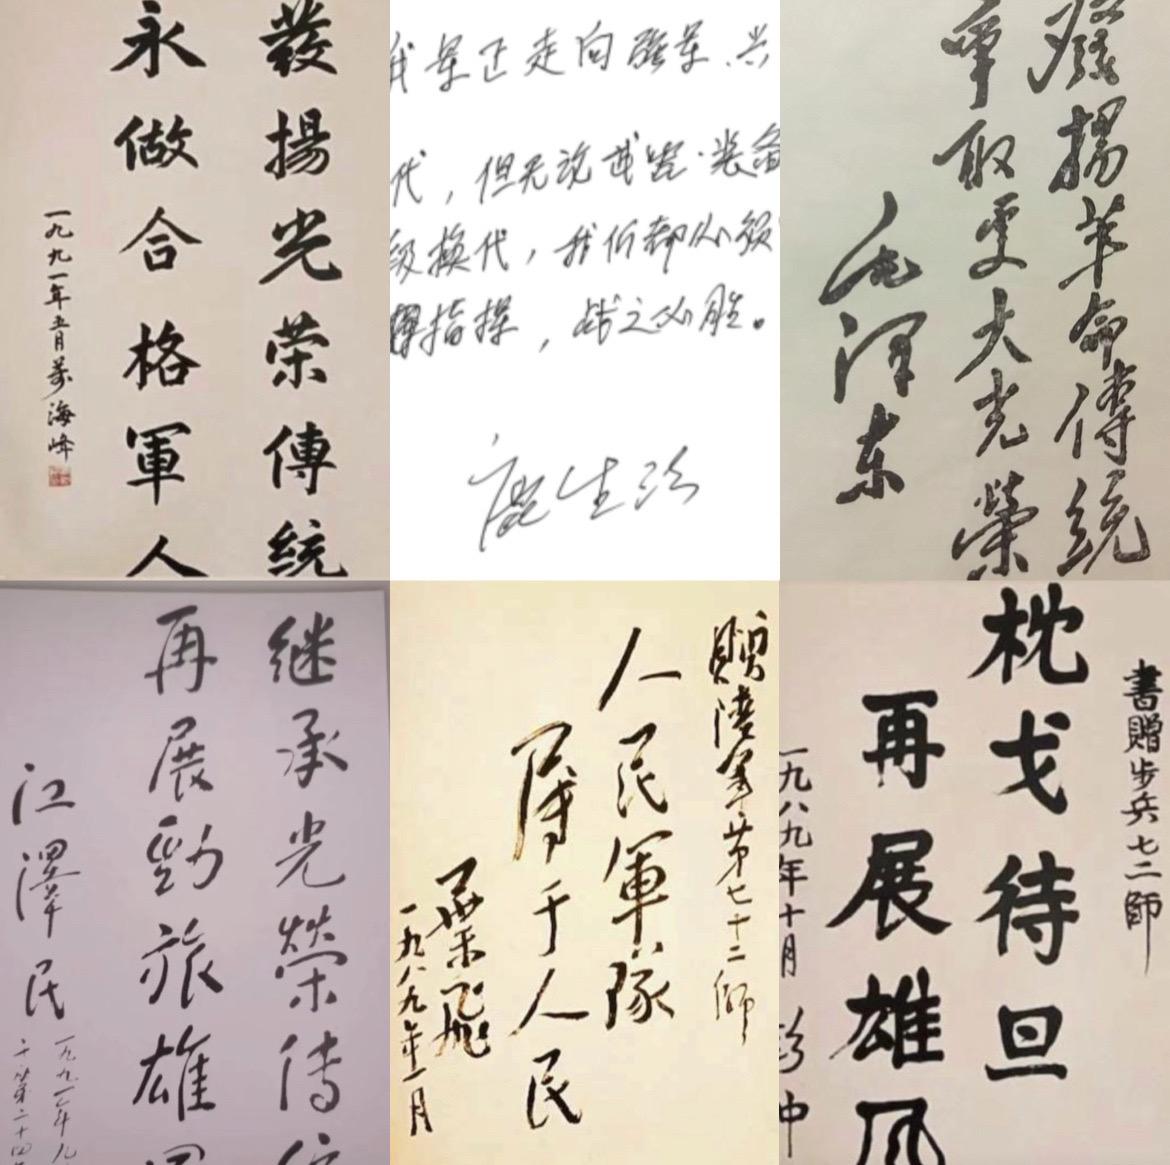 發揚光荣傳統
永做合格軍人
一九九一年五月萬海峰
我军正走向强军、兴
代，但无论武器·装备
级换代，我们都必须
挥指挥，战之必胜。
發揚革命傳統
爭取更大光榮
毛泽东
继承光榮传统
再展勁旅雄風
江澤民
一九九一年九
贈陸軍第七十二師
人民軍隊
属于人民
葉飛
一九八九年一月
書贈步兵七二師
枕戈待旦
再展雄风
一九八九年十月